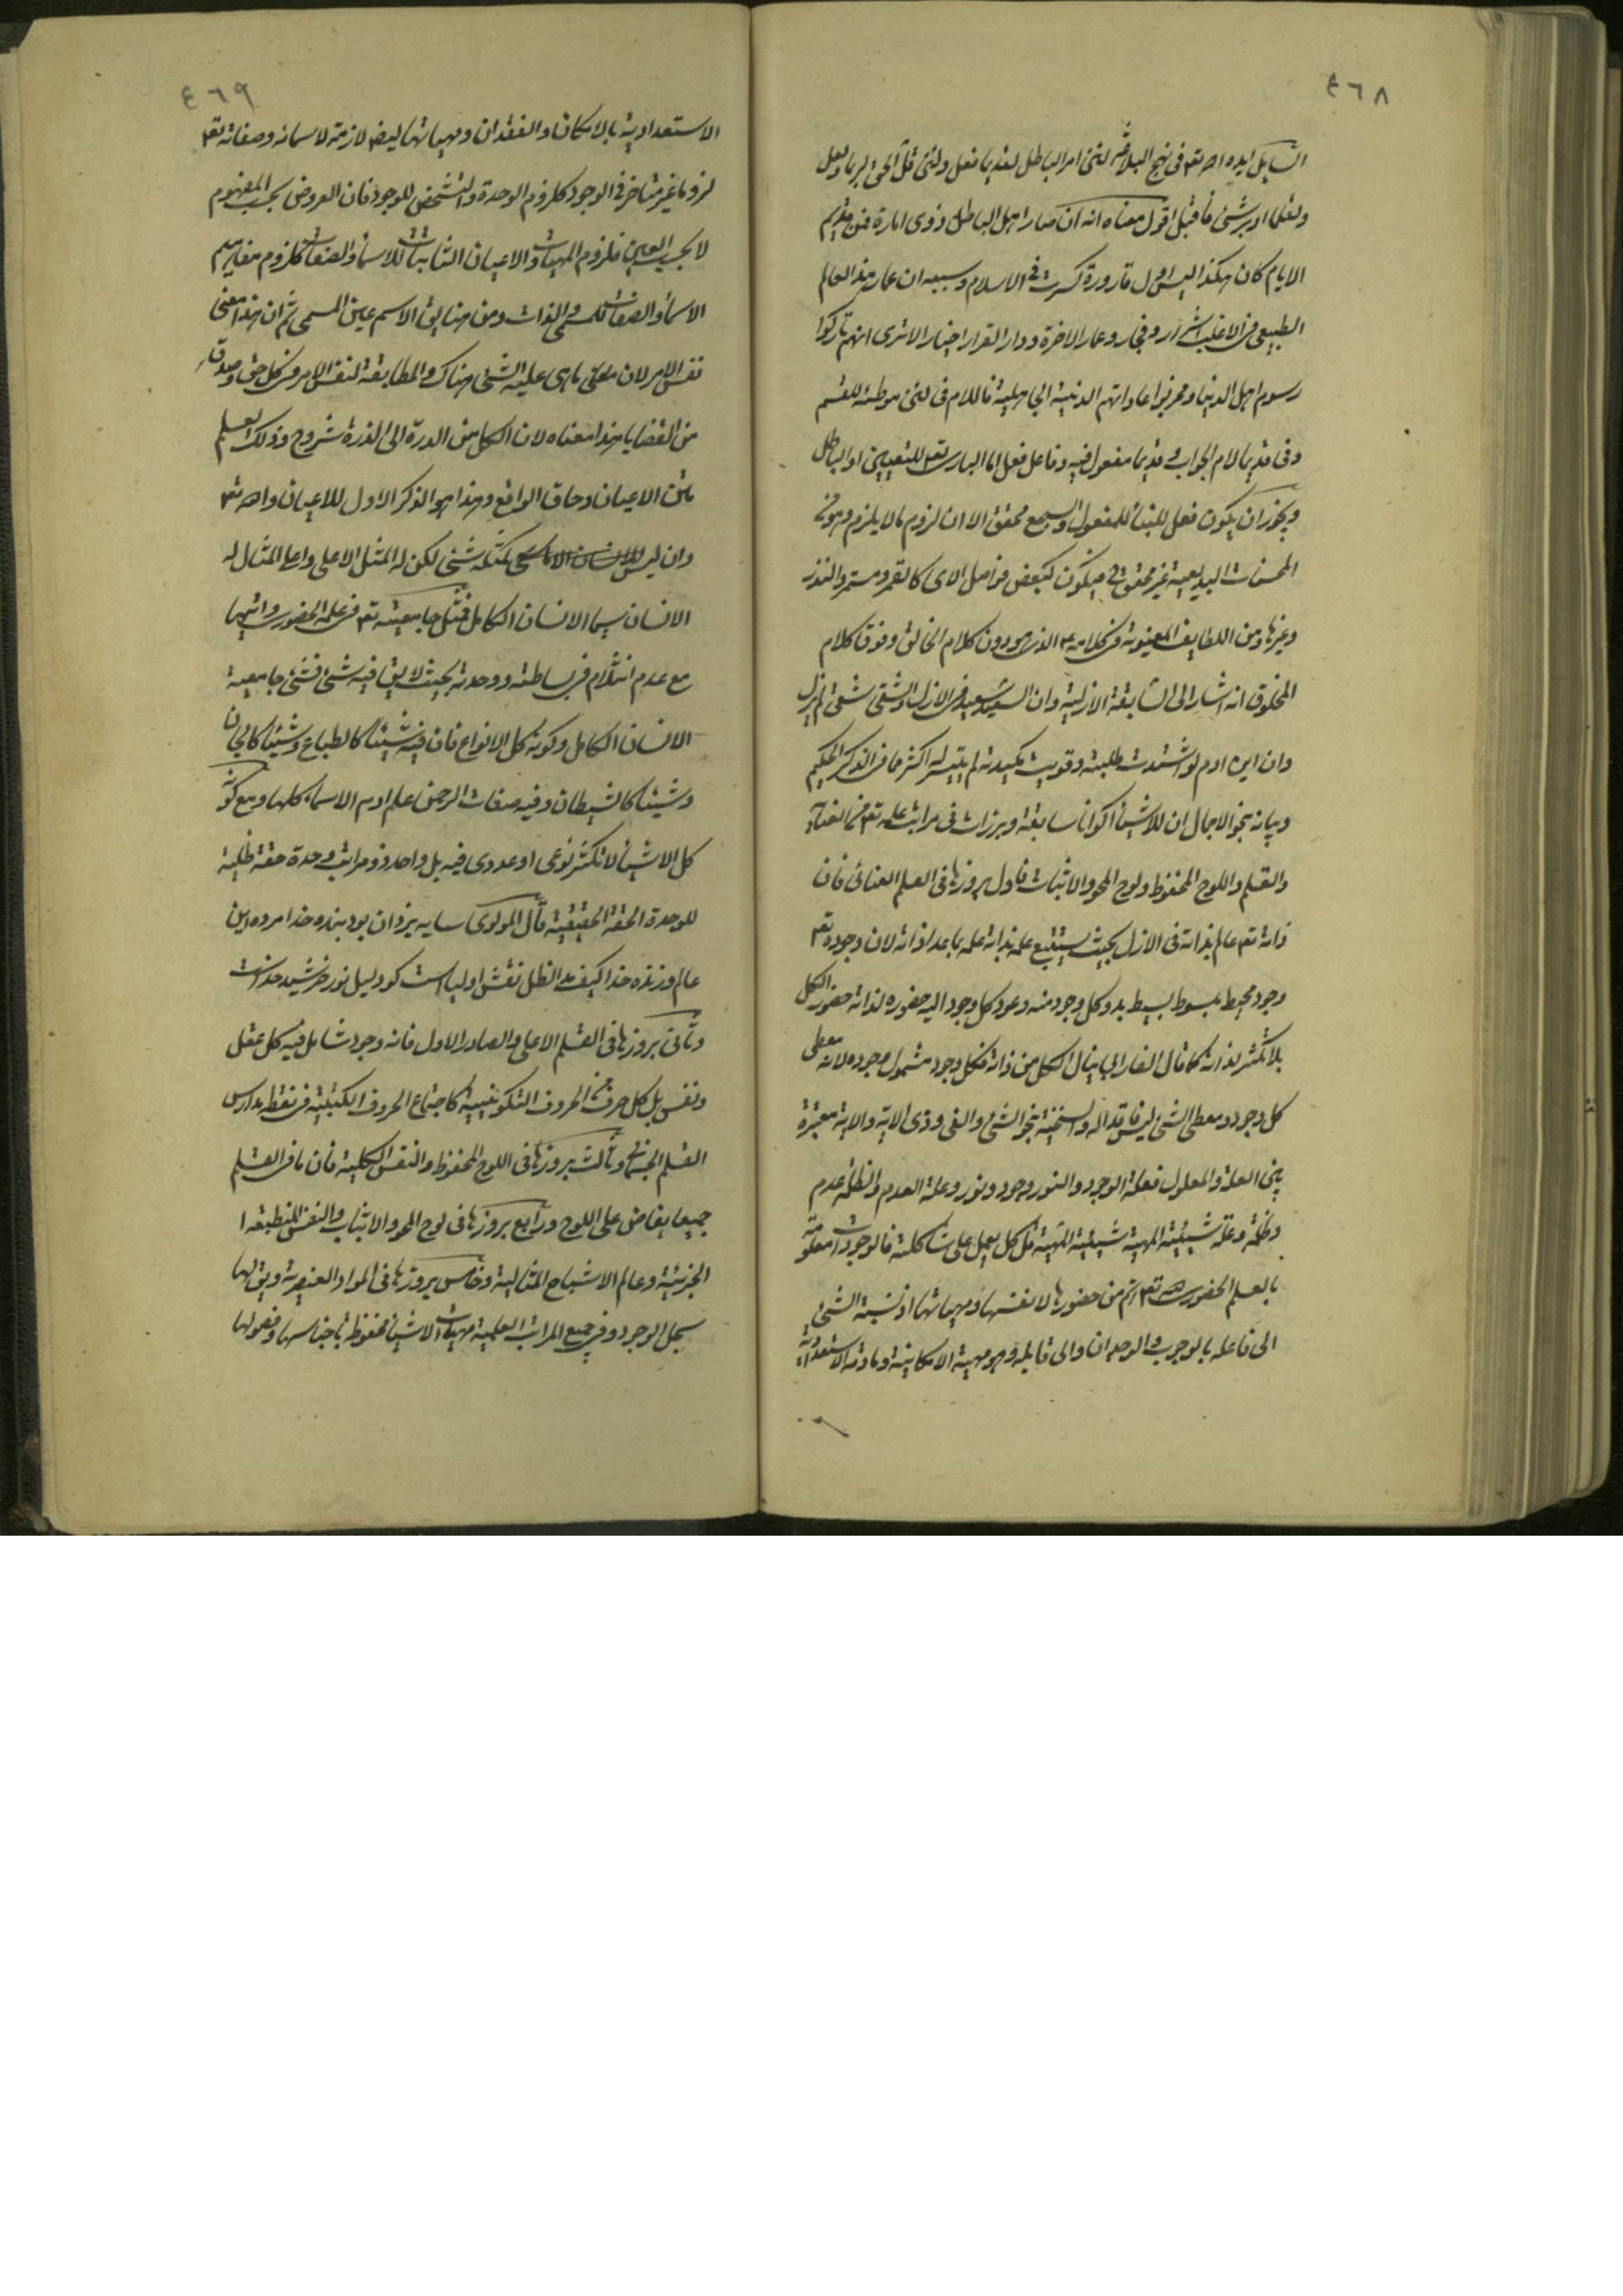 ٤٦٨
السايل ايده الله تعم فى نهج البلاغة لئن امر الباطل لقديما فعل ولئن قل الحق لربما ولعل
ولقلما ادبر شىء فاقبل اقول معناه انه ان صار اهل الباطل ذوى امارة فمن قديم
الايام كان هكذا ليس اول قارورة كسرت فى الاسلام وسببه ان عمار هذا العالم
الطبيعى فى الاغلب اشرار وفجار وعمار الاخرة ودار القرار اخيار الا ترى انهم تاركوا
رسوم اهل الدنيا ومخربوا عاداتهم الدنية الجاهلية فاللام فى لئن موطئة للقسم
وفى قديما لام الجواب وقديما مفعول فيه وفاعل فعل اما البارى تعم للتعيين او الباطل
ويجوز ان يكون فعل للبناء للمفعول والسجع محقق الا ان لزوم ما لا يلزم وهو من
المحسنات البديعية غير محقق ح فيكون كبعض فواصل الاى كالقمر ومستمر والنذر
وغيرها ومن اللطايف المعنوية فى كلامه ع الذى هو دون كلام الخالق وفوق كلام
المخلوق انه اشار الى السابقة الازلية وان السعيد سعيد فى الازل والشقى شقى لم يزل
وان ابن ادم لو اشتدت طلبته وقويت مكيدته لم يتيسر له اكثر مما فى الذكر الحكيم
وبيانه بنحو الاجمال ان للاشياء اكوانا سابقة وبرزات فى مراتب علمه تعم من العناية
والقلم واللوح المحفوظ ولوح المحو والاثبات فاول بروزها فى العلم العنائى فان
ذاته تعم عالم بذاته فى الازل بحيث يستتبع علمه بذاته علمه بما عدا ذاته لان وجوده تعم
وجود محيط مبسوط بسيط بدو كل وجود منه وعود كل وجود اليه حضوره لذاته حضور الكل
بلا تكثر لذاته كما قال الفارابى ينال الكل من ذاته فكل وجود مشمول وجوده لانه معطى
كل وجود ومعطى الشىء ليس فاقدا له والسنخية بنحو الشىء والفى وذى الاية والاية معتبرة
بين العلة والمعلول فعلة الوجود والنور وجود ونور وعلة العدم والظلمة عدم
وظلمة وعلة شيئية المهية شيئية المهية قل كل يعمل على شاكلته فالوجودات معلومة
بالعلم الحضورى له تعم اتم من حضورها لانفسها ومهياتها اذ نسبة الشىء
الى فاعله بالوجوب والوجدان والى قابله وهو مهيته الامكانية ومادته الاستعدادية
٤٦٩
الاستعدادية بالامكان والفقدان ومهياتها ايضا لازمة لاسمائه وصفاته تعم
لزوما غير متاخر فى الوجود كلزوم الوحدة والتشخص للوجود فان العروض بحسب المفهوم
لا بحسب العين فلزوم المهيات والاعيان الثابتات للاسماء والصفات كلزوم مفاهيم
الاسماء والصفات للمسمى والذات ومن هنا يق الاسم عين المسمى ثم ان هذا معنى
نفس الامر لان معنى ما هى عليه الشىء هناك والمطابقة لنفس الامر فى كل حق وصدق
من القضايا هذا معناه لان الكل من الدرة الى الذرة مشروح وذلك العلم
متن الاعيان وحاق الواقع وهذا هو الذكر الاول للاعيان والله تعم
وان ليس كمثله شىء لكن له المثل الاعلى واعلى المثال له
الانسان سيما الانسان الكامل فمثل جامعيته تعم فى علمه الحضورى واتيها
مع عدم انثلام فى بساطته ووحدته بحيث لا يبق فيه شىء فشىء جامعية
الانسان الكامل وكونه كل الانواع فان فيه شيئا كالطباع وشيئا كالجان
وشيئا كالشيطان وفيه صفات الرحمن علم ادم الاسماء كلها ومع كونه
كل الاشياء لا تكثر نوعى او عددى فيه بل واحد ذو مراتب وحدة حقة ظلية
للوحدة الحقة الحقيقية قال المولوى سايه يزدان بود بنده خدا مرده اين
عالم وزنده خدا كيف مد الظل نقش اولياست كو دليل نور خورشيد خداست
وثانى بروزها فى القلم الاعلى والصادر الاول فانه وجود شامل فيه كل عقل
ونفس بل كل حرف من الحروف التكوينية كاجتماع الحروف الكتبية فى نقطة مداد راس
القلم الجسمانى وثالث بروزها فى اللوح المحفوظ والنفس الكلية فان ما فى القلم
جميعا يفاض على اللوح ورابع بروزها فى لوح المحو والاثبات والنفس المنطبعة
الجزئية وعالم الاشباح المثالية وخامس بروزها فى المواد العنصرية ويق لها
سجل الوجود وفى جميع المراتب العلمية مهيات الاشياء محفوظة باجناسها وفصولها